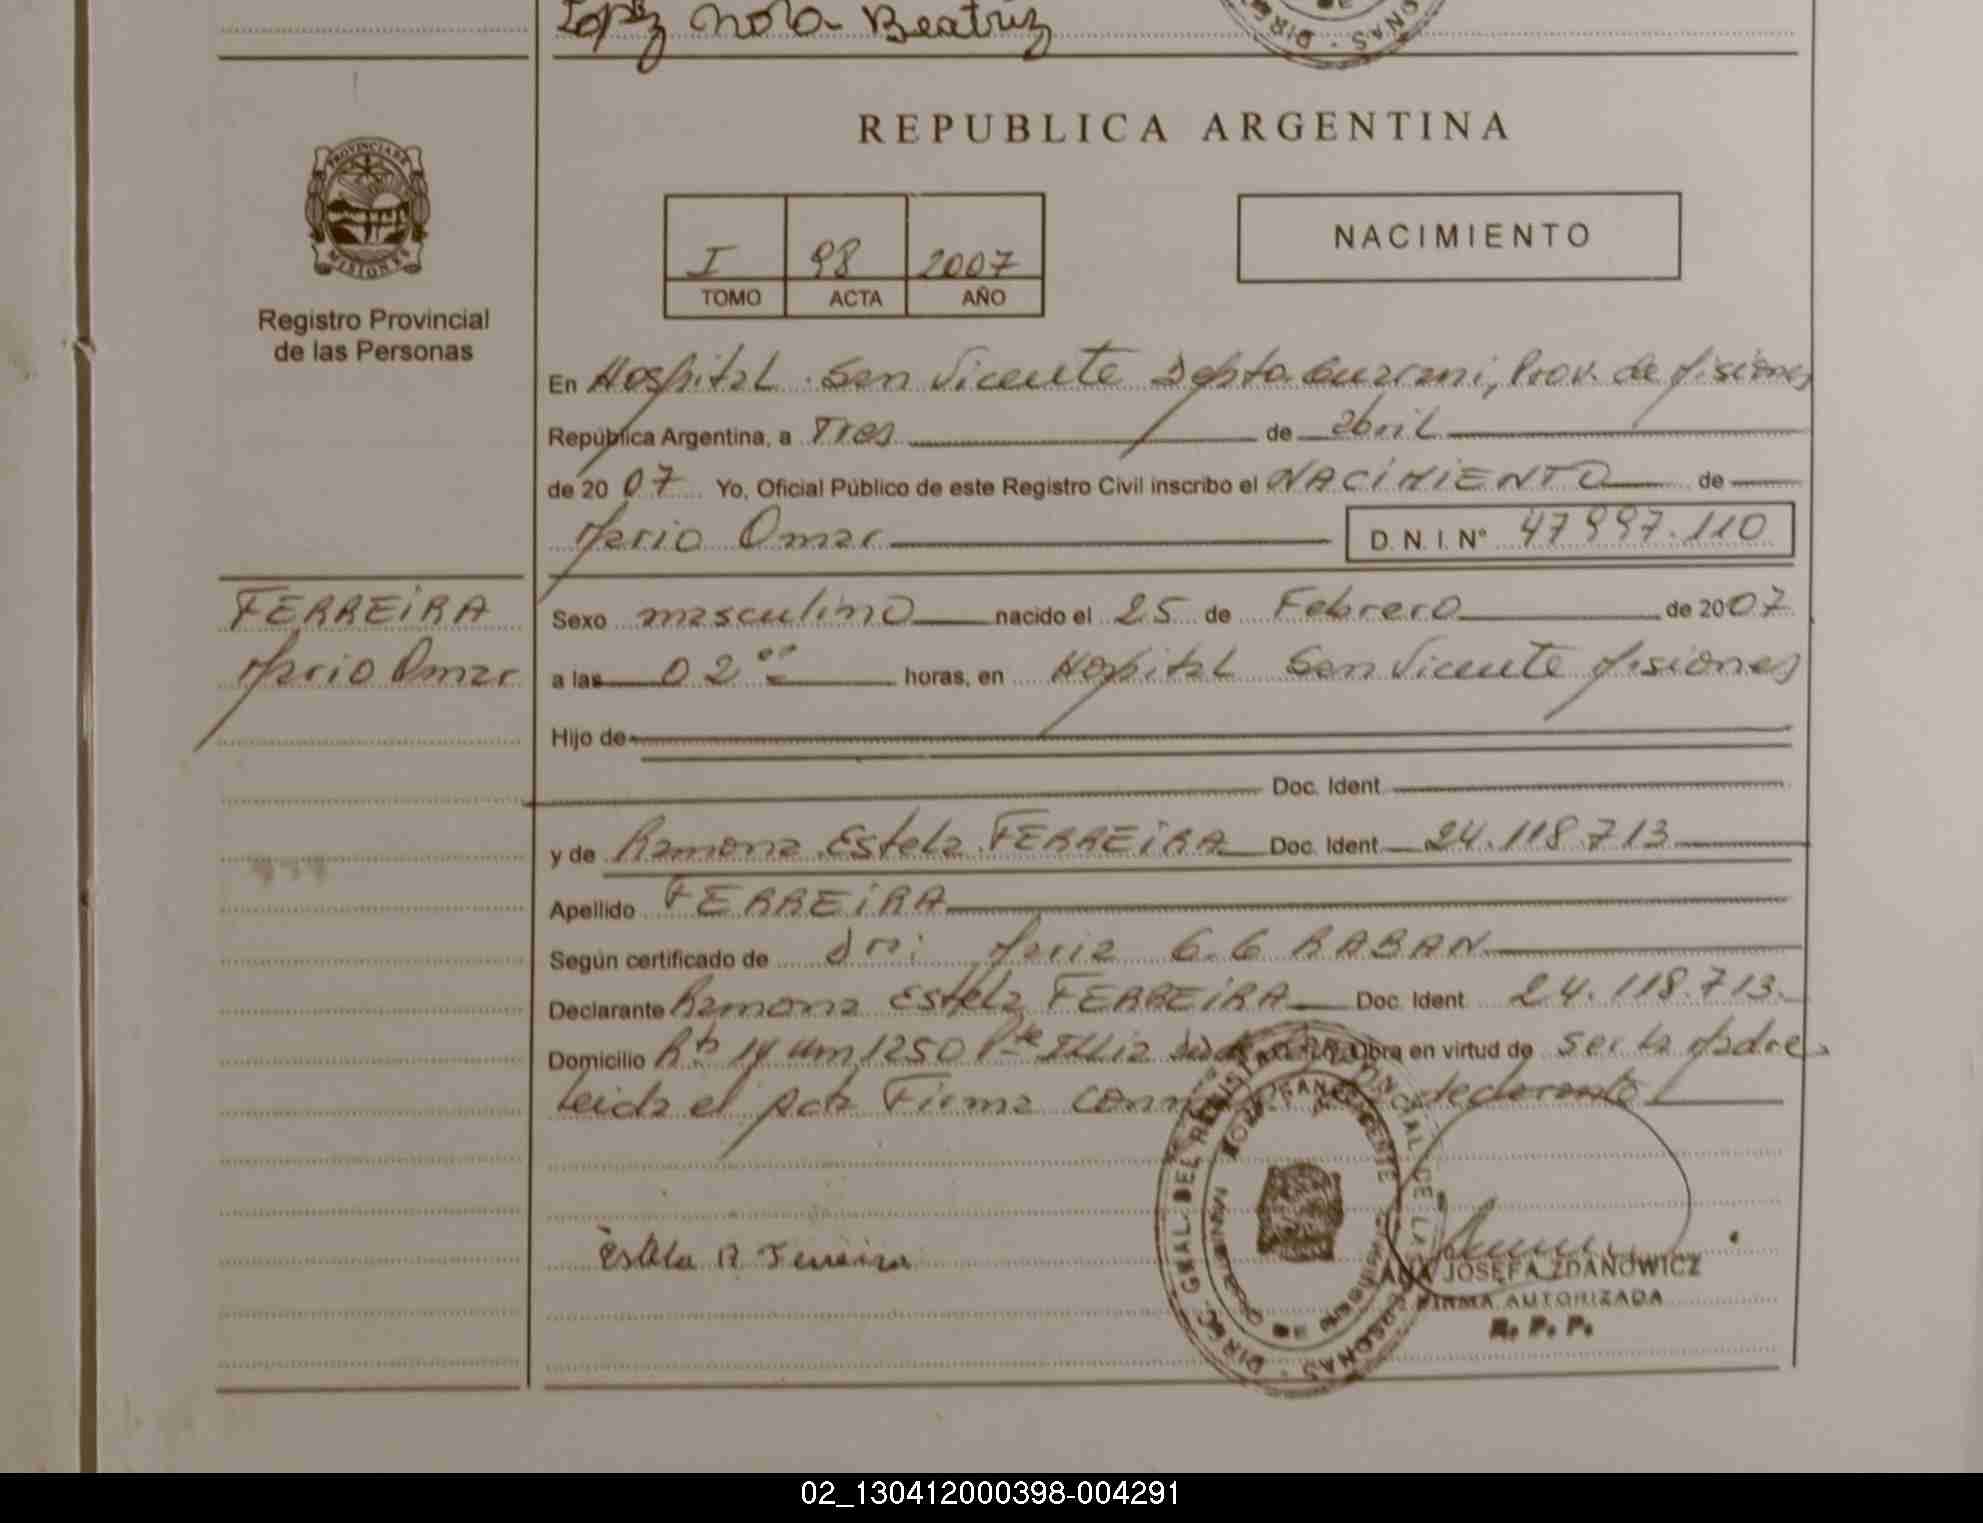 Lopez Nora Beatriz
REPUBLICA ARGENTINA
PROVINCIA DE
MISIONES
Registro Provincial
de las Personas
I 98 2007
TOMO ACTA AÑO
NACIMIENTO
En Hospital San Vicente Depto Guarani, Prov. de Misiones
República Argentina, a Tres de abril
de 2007 Yo, Oficial Público de este Registro Civil inscribo el NACIMIENTO de
Mario Omar D. N. I. N° 47997.110
FERREIRA
Mario Omar
Sexo masculino nacido el 25 de Febrero de 2007
a las 02 00 horas, en Hospital San Vicente Misiones
Hijo de
Doc. Ident
y de Ramona Estela FERREIRA Doc. Ident 24.118.713
Apellido FERREIRA
Según certificado de Maria G.G RABAN
Declarante Ramona Estela FERREIRA Doc. Ident 24.118.713
Domicilio 1250 Obra en virtud de ser la Madre
Leida el acta Firma declarante
Estela R Ferreira
ANA JOSEFA ZDANOWICZ
FIRMA AUTORIZADA
R. P. P.
02_130412000398-004291